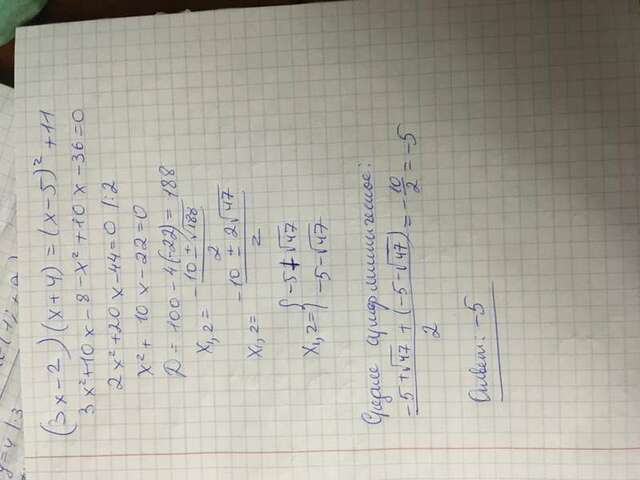 (3x-2)(x+4)=(x-5)²+11
3x²+10x-8-x²+10x-36=0
2x²+20x-44=0 |:2
x²+10x-22=0
D=100-4(-22)=188
x₁,₂=(-10±√188)/2
x₁,₂=(-10±2√47)/2
x₁,₂={-5+√47
-5-√47
Среднее арифметическое:
(-5+√47+(-5-√47))/2=-10/2=-5
Ответ: -5